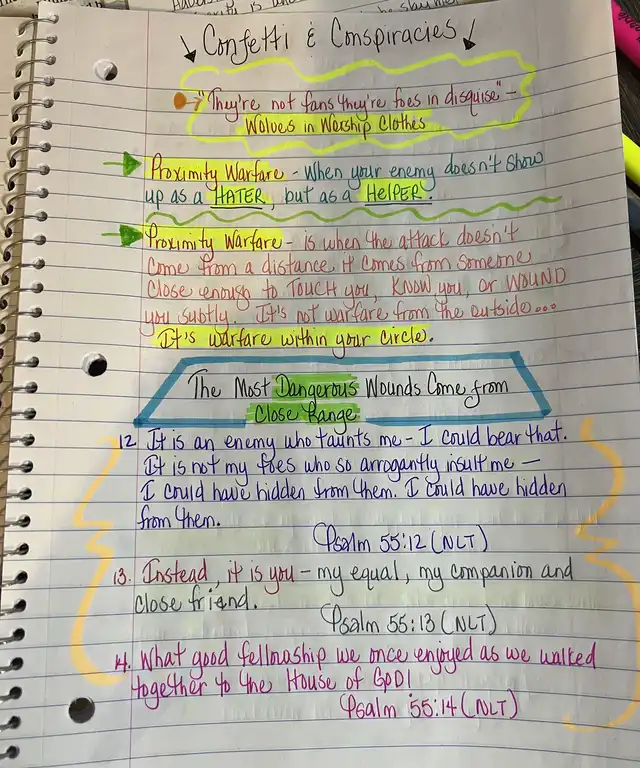 Confetti & Conspiracies
"They're not fans they're foes in disguise" -
Wolves in Worship Clothes
Proximity Warfare - When your enemy doesn't show
up as a HATER, but as a HELPER.
Proximity Warfare - is when the attack doesn't
come from a distance it comes from someone
close enough to TOUCH YOU, KNOW YOU, or WOUND
you subtly. It's not warfare from the outside...
It's warfare within your circle.
The Most Dangerous Wounds Come from
Close Range
12. It is an enemy who taunts me - I could bear that.
It is not my foes who so arrogantly insult me -
I could have hidden from them. I could have hidden
from them.
Psalm 55:12 (NLT)
13. Instead, it is you - my equal, my companion and
close friend.
Psalm 55:13 (NLT)
14. What good fellowship we once enjoyed as we walked
together to the House of GOD!
Psalm 55:14 (NLT)